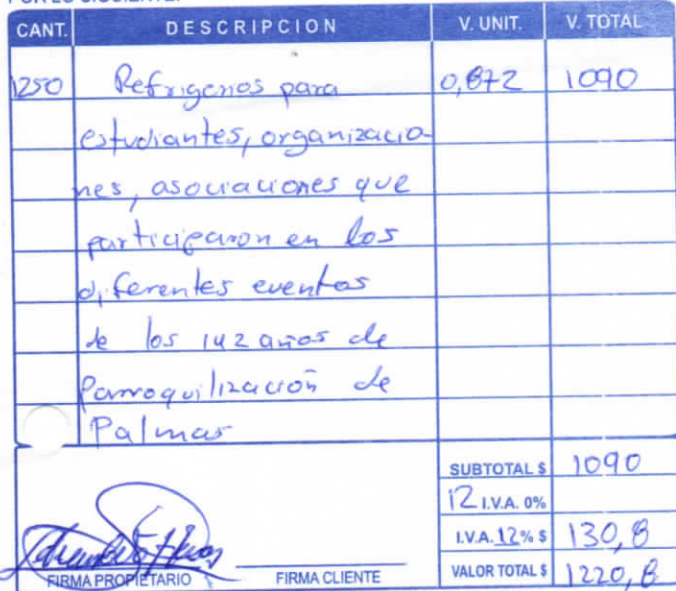 CANT. DESCRIPCION V. UNIT. V. TOTAL
1250 Refrigerios para 0,872 1090
estudiantes, organizacio-
nes, asociaciones que
participaron en los
diferentes eventos
de los 142 años de
Parroquilización de
Palmar
SUBTOTAL $ 1090
12 I.V.A. 0%
I.V.A. 12% $ 130,8
FIRMA PROPIETARIO FIRMA CLIENTE VALOR TOTAL $ 1220,8